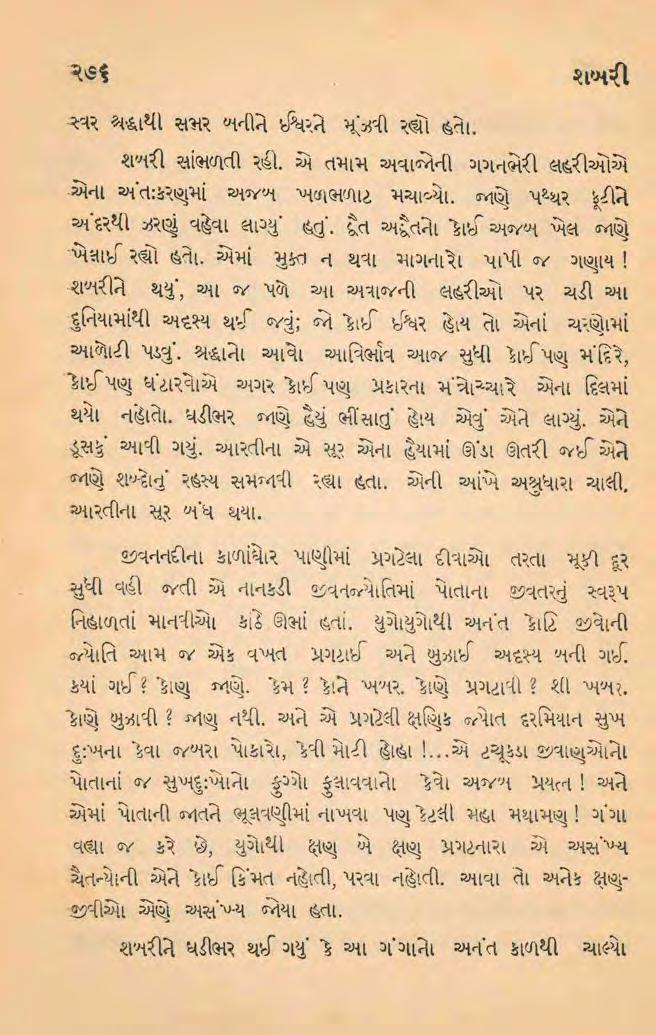 ૨૭૬ શબરી
સ્વર શ્રદ્ધાથી સભર બનીને ઈશ્વરને મૂંઝવી રહ્યો હતો.
શબરી સાંભળતી રહી. એ તમામ અવાજોની ગગનભેરી લહરીઓએ
એના અંતઃકરણમાં અજબ ખળભળાટ મચાવ્યો. જાણે પથ્થર ફૂટીને
અંદરથી ઝરણું વહેવા લાગ્યું હતું. દ્વૈત અદ્વૈતનો કોઈ અજબ ખેલ જાણે
ખેલાઈ રહ્યો હતો. એમાં મુક્ત ન થવા માગનારો પાપી જ ગણાય !
શબરીને થયું, આ જ પળે આ અવાજની લહરીઓ પર ચડી આ
દુનિયામાંથી અદૃશ્ય થઈ જવું; જો કોઈ ઈશ્વર હોય તો એનાં ચરણોમાં
આળોટી પડવું. શ્રદ્ધાનો આવો આવિર્ભાવ આજ સુધી કોઈપણ મંદિરે,
કોઈપણ ઘંટારવોએ અગર કોઈ પણ પ્રકારના મંત્રોચ્ચારે એના દિલમાં
થયો નહોતો. ઘડીભર જાણે હૈયું ભીંસાતું હોય એવું એને લાગ્યું. એને
ડૂસકું આવી ગયું. આરતીના એ સૂર એના હૈયામાં ઊંડા ઊતરી જઈ એને
જાણે શબ્દોનું રહસ્ય સમજાવી રહ્યા હતા. એની આંખે અશ્રુધારા ચાલી.
આરતીના સૂર બંધ થયા.
જીવનનદીના કાળાંધોર પાણીમાં પ્રગટેલા દીવાઓ તરતા મૂકી દૂર
સુધી વહી જતી એ નાનકડી જીવનજ્યોતિમાં પોતાના જીવતરનું સ્વરૂપ
નિહાળતાં માનવીઓ કાંઠે ઊભાં હતાં. યુગોયુગોથી અનંત કોટિ જીવોની
જ્યોતિ આમ જ એક વખત પ્રગટાઈ અને બુઝાઈ અદૃશ્ય બની ગઈ.
કયાં ગઈ ? કોણ જાણે. કેમ ? કોને ખબર. કોણે પ્રગટાવી ? શી ખબર.
કોણે બુઝાવી ? જાણ નથી. અને એ પ્રગટેલી ક્ષણિક જ્યોત દરમિયાન સુખ
દુઃખના કેવા જબરા પોકારો, કેવી મોટી હોહા !...એ ટચૂકડા જીવાણુઓનો
પોતાનાં જ સુખદુઃખોનો ફુગ્ગો ફુલાવવાનો કેવો અજબ પ્રયત્ન ! અને
એમાં પોતાની જાતને ભૂલવણીમાં નાખવા પણ કેટલી મહા મથામણ ! ગંગા
વહ્યા જ કરે છે, યુગોથી ક્ષણ બે ક્ષણ પ્રગટનારા એ અસંખ્ય
ચૈતન્યોની એને કોઈ કિંમત નહોતી, પરવા નહોતી. આવા તો અનેક ક્ષણ-
જીવીઓ એણે અસંખ્ય જોયા હતા.
શબરીને ઘડીભર થઈ ગયું કે આ ગંગાનો અનંત કાળથી ચાલ્યો